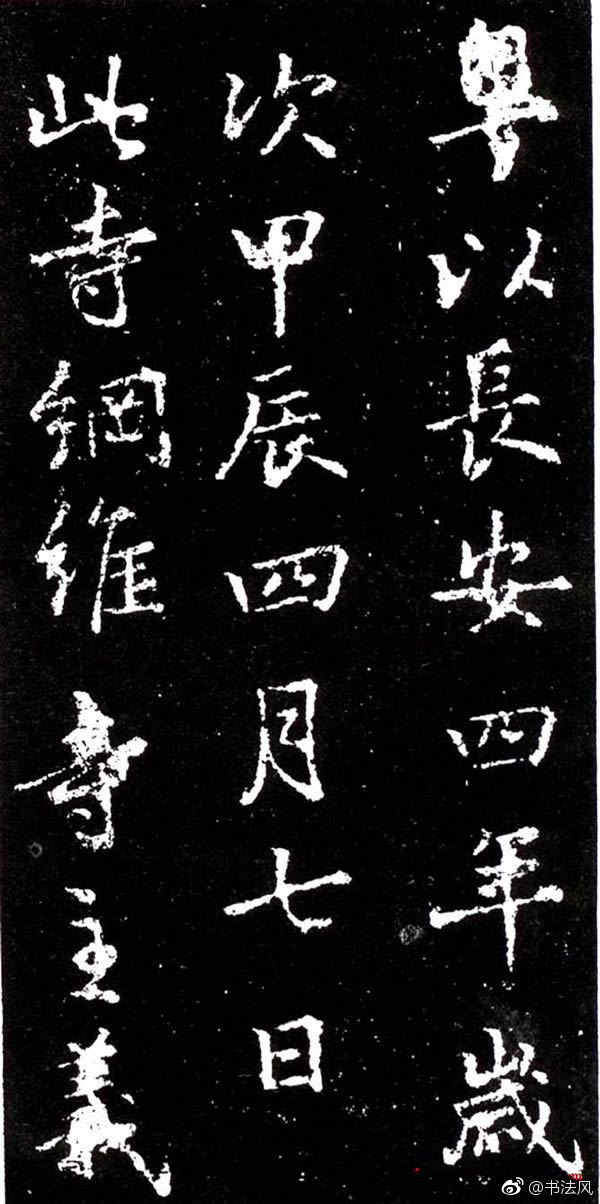 粤以長安四年歲
次甲辰四月七日
此寺綱維寺主義
@书法风